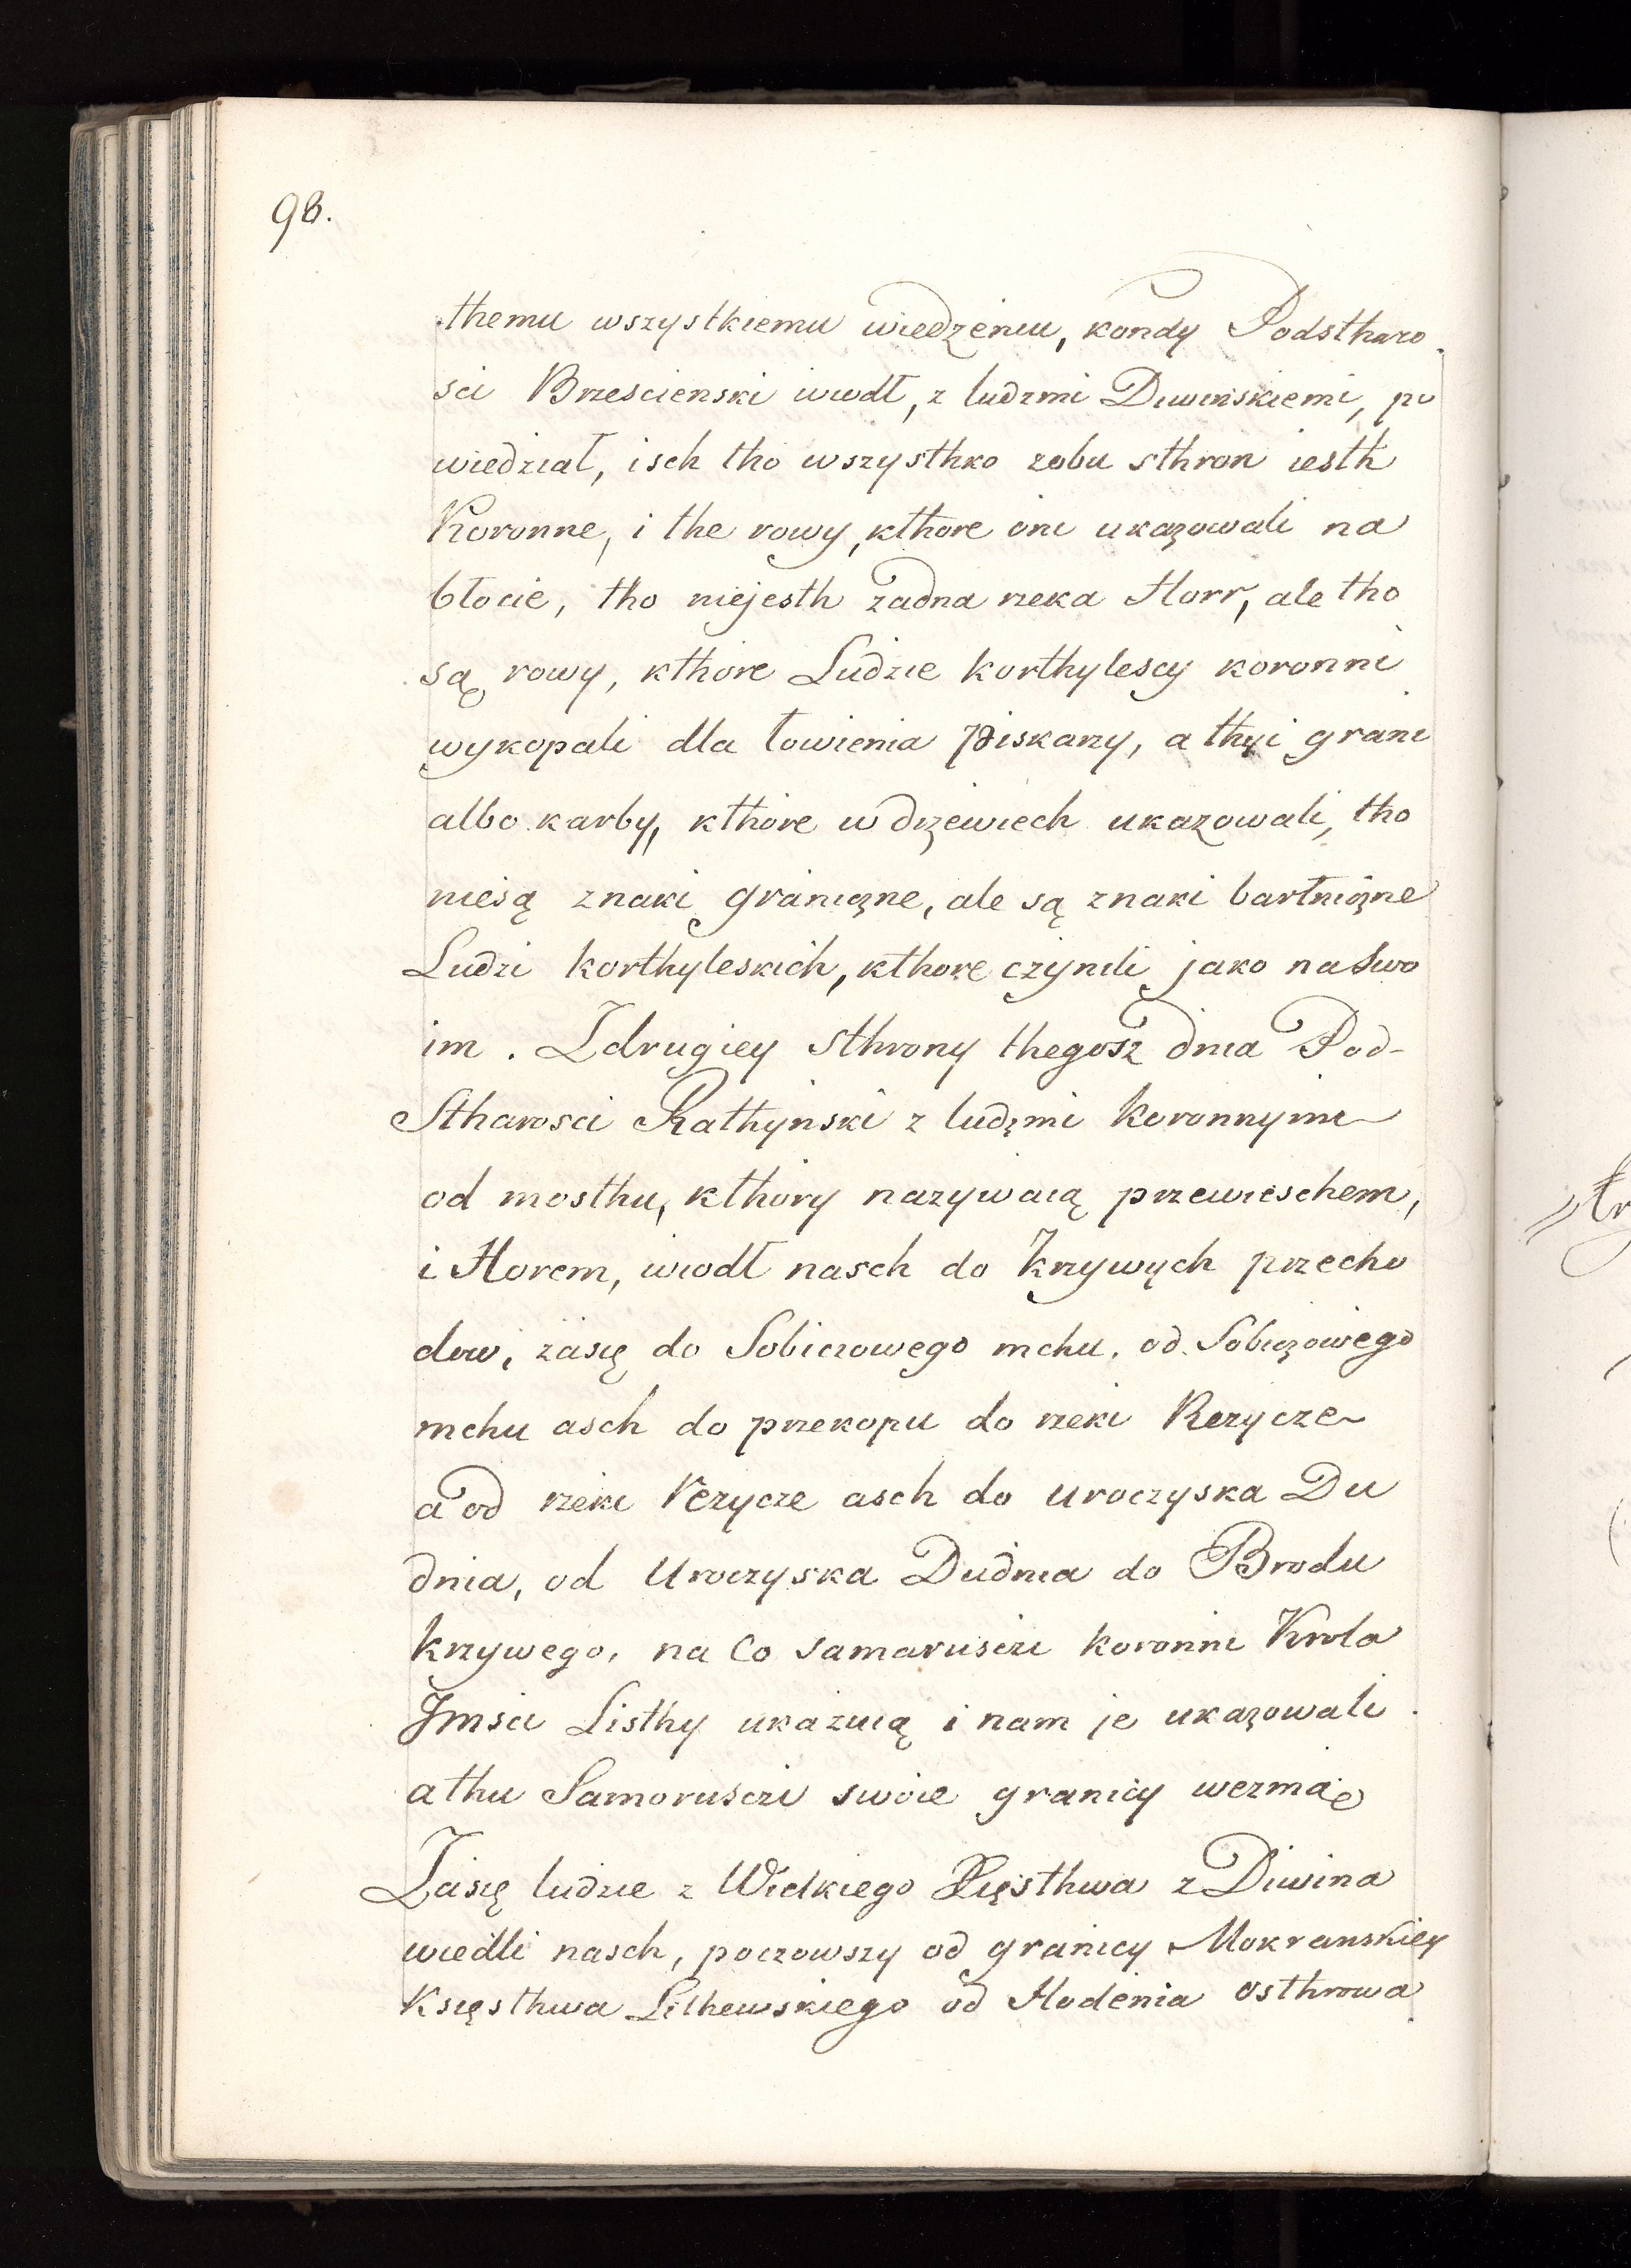 98.
themu wszystkiemu wiedzeniu, kondy Podstharo
sci Brzescienski wiodł, z ludzmi Diwinskiemi, po
wiedział, isch tho wszysthko zobu sthron iesth
Koronne, i the rowy, kthore oni ukazowali na
błocie, tho niejesth żadna rzeka Horr, ale tho
są rowy, kthore Ludzie korthylescy koronni
wykopali dla łowienia piskarzy, a thyi grani
albo karby, kthore w drzewiech ukazowali, tho
niesą znaki graniczne, ale są znaki bartniczne
Ludzi korthyleskich, kthore czynili jako na Swo
im. Zdrugiey Sthrony thegosz dnia Pod-
Stharosci Rathynski z ludzmi koronnymi
od mosthu, kthory nazywaią przewieschem,
i Horem, wiodł nasch do krzywych przecho
dow, zasię do Sobiczowego mchu, od Sobiczowego
mchu asch do przekopu do rzeki Rezycze
a od rzeki Rezycze asch do uroczyska Du
dnia, od Uroczyska Dudnia do Brodu
krzywego, na co samarusczi koronni Krola
Jmsci Listhy ukazuią i nam je ukazowali
athu Samorusczi swoie granicy wezmąc
Zasię ludzie z Wielkiego Xięsthwa z Diwina
wiedli nasch, poczowszy od granicy Mokranskiey
Księsthwa Lithewskiego od Hodenia osthrowa